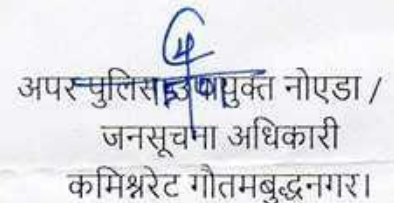 अपर पुलिस उपायुक्त नोएडा /
जनसूचना अधिकारी
कमिश्नरेट गौतमबुद्धनगर।